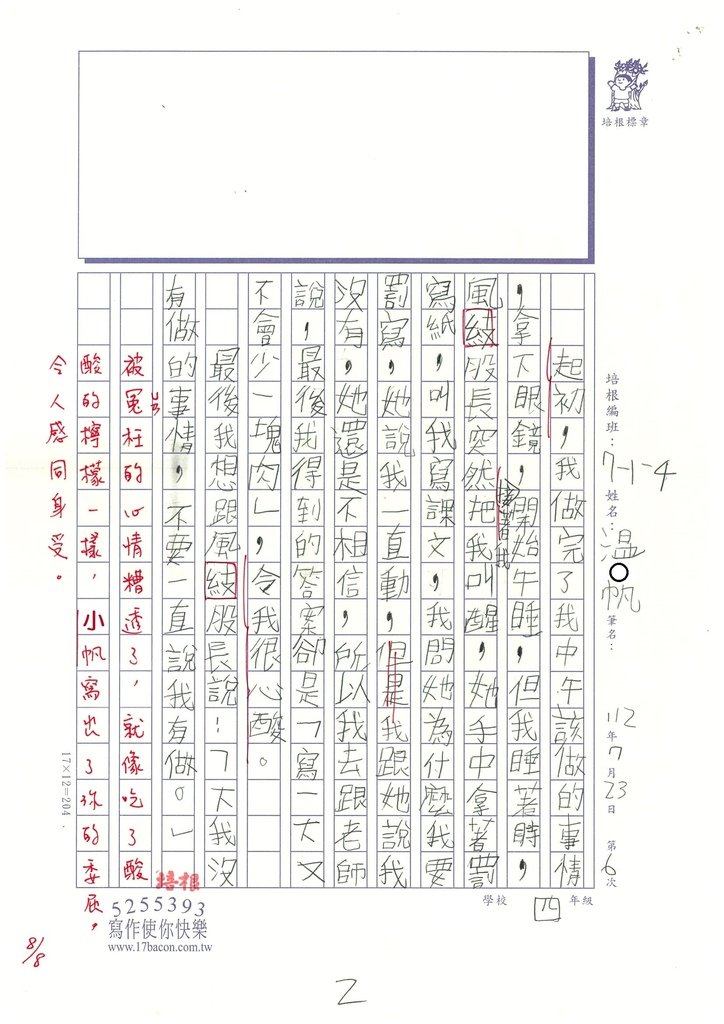 培根標章
培根編班：7-1-4 姓名：溫○帆 筆名：
112年7月23日 第6次
學校 四 年級
起初，我做完了我中午該做的事情
，拿下眼鏡，接著我開始午睡，但我睡著時，
風紀股長突然把我叫醒，她手中拿著罰
寫紙，叫我寫課文，我問她為什麼我要
罰寫，她說我一直動，但是我跟她說我
沒有，她還是不相信，所以我去跟老師
說，最後我得到的答案卻是「寫一大又
不會少一塊肉」，令我很心酸。
最後我想跟風紀股長說：「大我沒
有做的事情，不要一直說我有做。」
被冤ㄩㄢ枉的心情糟透了，就像吃了酸
酸的檸檬一樣，小帆寫出了你的委屈，
令人感同身受。
8/8
17×12=204.
培根
5255393
寫作使你快樂
www.17bacon.com.tw
2